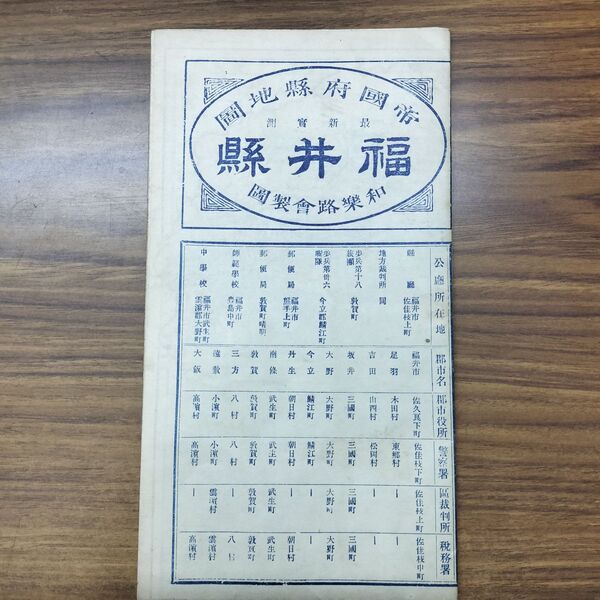 帝國府縣地圖
最新實測
福井縣
和樂路會製圖
公廳所在地 郡市名 郡市役所 警察署 區裁判所 税務署
縣廳 福井市佐佳枝上町
地方裁判所 同
步兵第十八旅團 敦賀町
步兵第卅六聯隊 今立郡鯖江町
郵便局 福井市照手上町
郵便局 敦賀町晴明
師範學校 福井市豊島中町
中學校 福井市武生町雲濱郡大野町
福井市 佐久良下町 佐佳枝下町 佐佳枝上町 佐佳枝中町
足羽 木田村 東鄕村 ー ー
吉田 山西村 松岡村 ー ー
坂井 三國町 三國町 三國町 三國町
大野 大野町 大野町 大野町 大野町
今立 鯖江町 鯖江町 ー ー
丹生 朝日村 朝日村 ー 朝日村
南條 武生町 武生町 武生町 武生町
敦賀 敦賀町 敦賀町 敦賀町 敦賀町
三方 八村 八村 ー 八村
遠敷 小濱町 小濱町 雲濱村 雲濱村
大飯 高濱村 高濱村 ー 高濱村